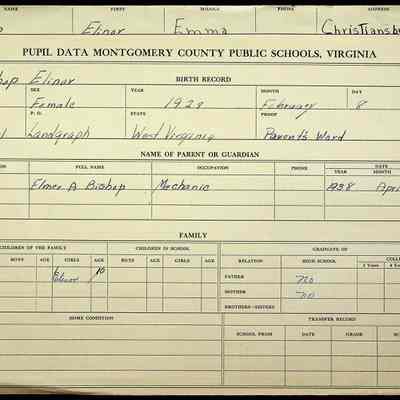 NAME FIRST MIDDLE PHONE ADDRESS
Elinor Emma Christiansb
PUPIL DATA MONTGOMERY COUNTY PUBLIC SCHOOLS, VIRGINIA
hop Elinor BIRTH RECORD
SEX YEAR MONTH DAY
Female 1928 February 8
P. O. STATE PROOF
Landgraph West Virginia Parent's Word
NAME OF PARENT OR GUARDIAN
FULL NAME OCCUPATION PHONE DATE
YEAR MONTH
Elmer A Bishop Mechanic 1938 Apri
FAMILY
CHILDREN OF THE FAMILY CHILDREN IN SCHOOL GRADUATE OF
BOYS AGE GIRLS AGE BOYS AGE GIRLS AGE RELATION HIGH SCHOOL COLL
2 Years 4 Ye
Elinor 10 FATHER no
MOTHER no
BROTHERS—SISTERS
HOME CONDITION TRANSFER RECORD
SCHOOL FROM DATE GRADE SC